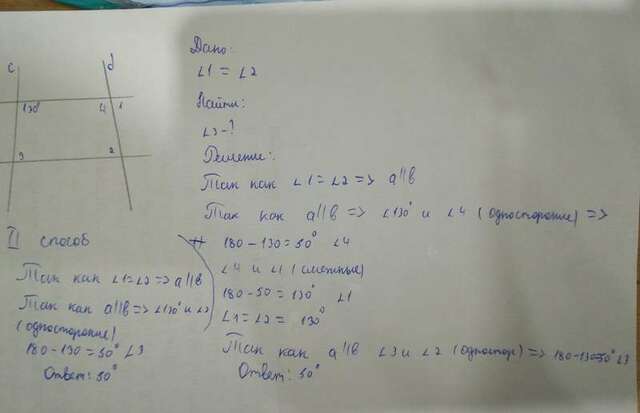 c d
130° 4 1
3 2
Дано:
∠1 = ∠2
Найти:
∠3 - ?
Решение:
Так как ∠1 = ∠2 => a||b
Так как a||b => ∠130° и ∠4 (односторонние) =>
180 - 130 = 50° ∠4
∠4 и ∠1 (смежные)
180 - 50 = 130° ∠1
∠1 = ∠2 = 130°
Так как a||b ∠3 и ∠2 (одностор) => 180-130=50° ∠3
Ответ: 50°
II способ
Так как ∠1=∠2 => a||b
Так как a||b => ∠130° и ∠2
(односторонние)
180 - 130 = 50° ∠3
Ответ: 50°